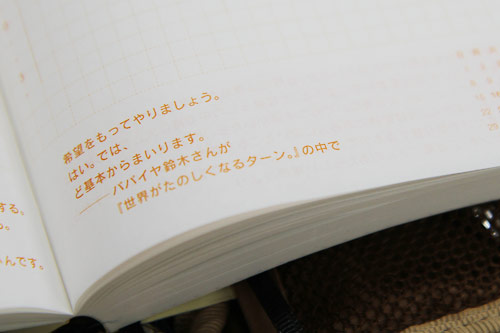 希望をもってやりましょう。
はい。では、
ど基本からまいります。
――パパイヤ鈴木さんが
『世界がたのしくなるターン。』の中で
する。
んです。